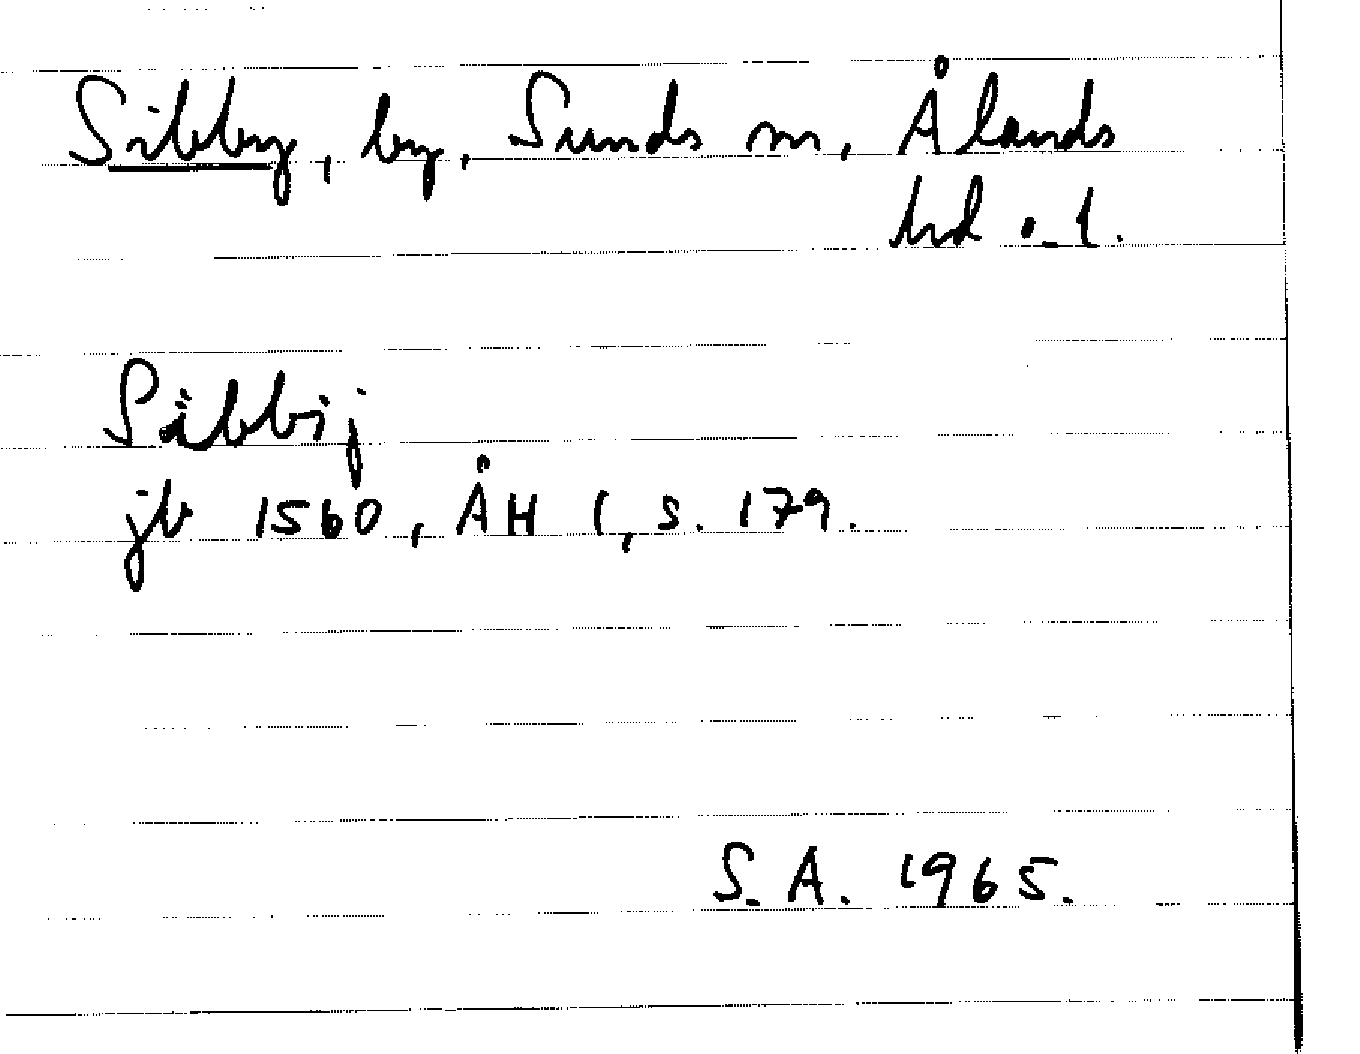 Sibby, by, Sunds sn, Ålands
hd o. l.
Säbbij
jb 1560, ÅH 1, s. 179.
S.A. 1965.